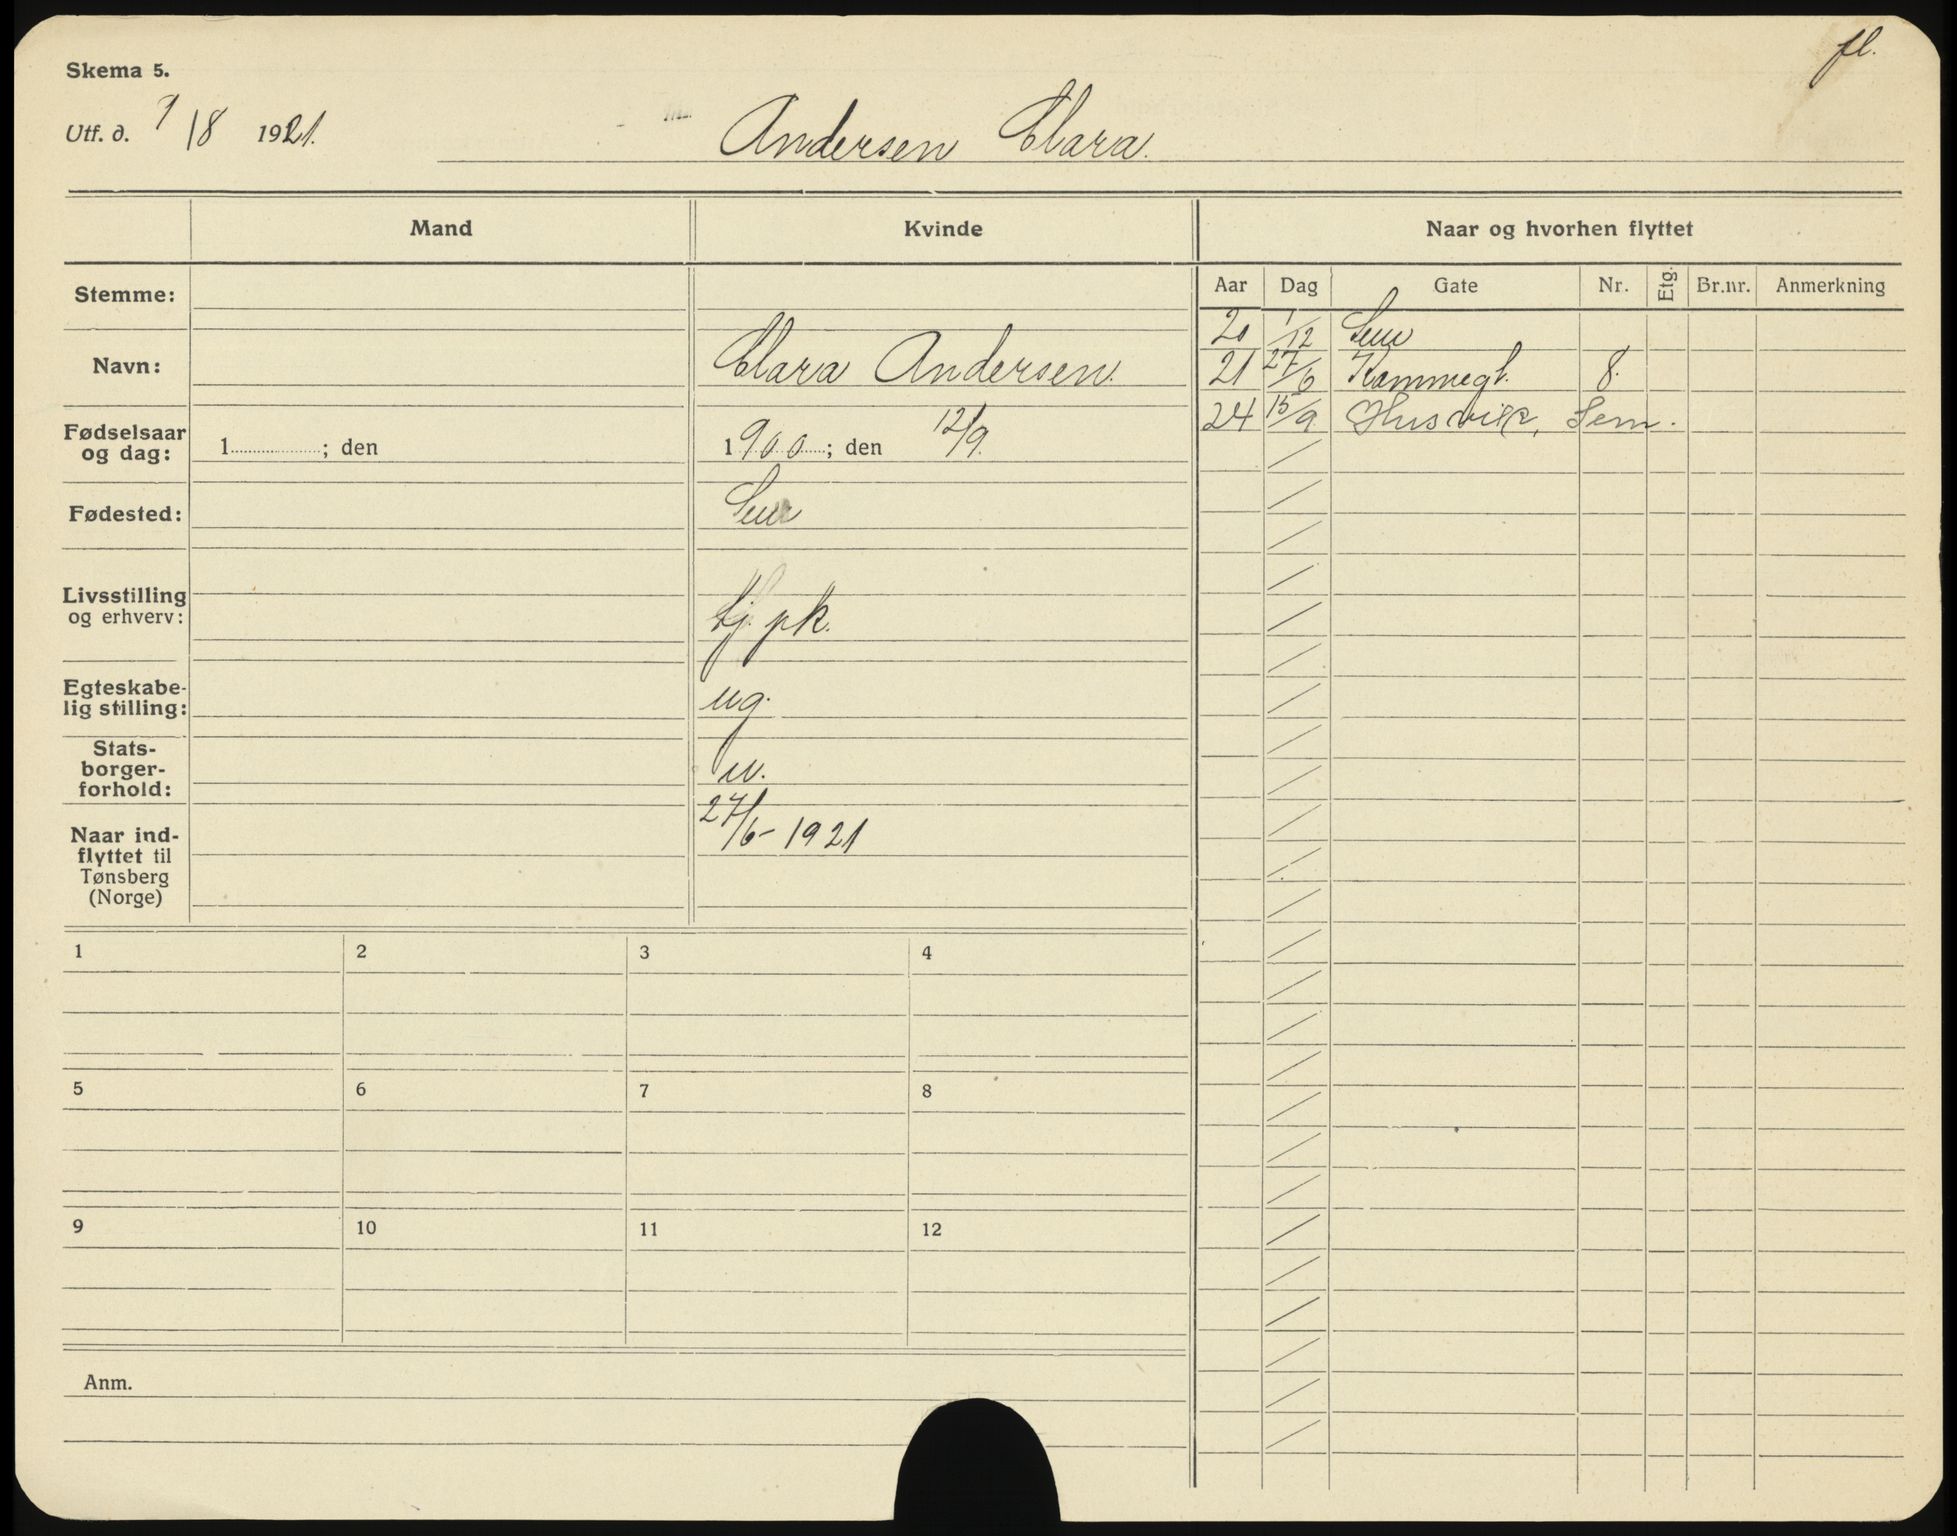 fl.
Skema 5.
Utf. d. 9/8 1921. Andersen Clara.
Mand Kvinde Naar og hvorhen flyttet
Aar Dag Gate Nr. Etg. Br.nr. Anmerkning
Stemme:
20 1/12 Sem
Navn: Clara Andersen.
21 27/6 Kammegt. 8.
24 15/9 Husvik, Sem.
Fødselsaar
og dag: 1..........; den 1900; den 12/9.
Fødested: Sem
Livsstilling
og erhverv: tj. pk.
Egteskabe-
lig stilling: ug.
Stats-
borger-
forhold: n.
Naar ind-
flyttet til
Tønsberg
(Norge) 27/6 - 1921
1 2 3 4
5 6 7 8
9 10 11 12
Anm.